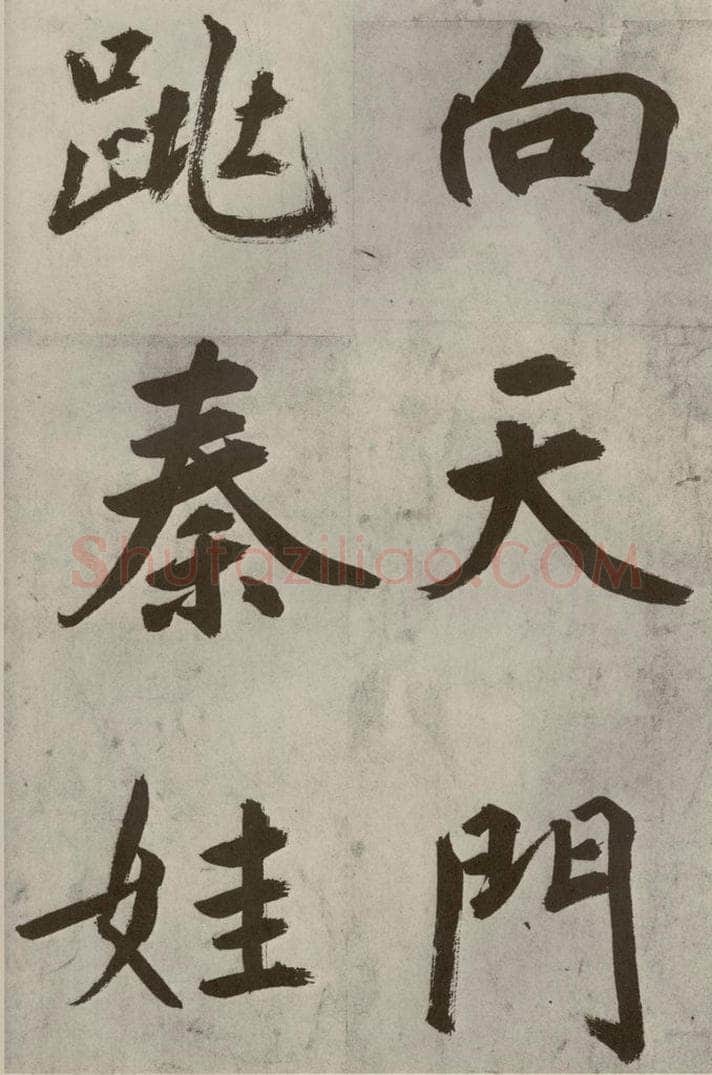 向天門
跳秦娃
Shufaziliao.COM